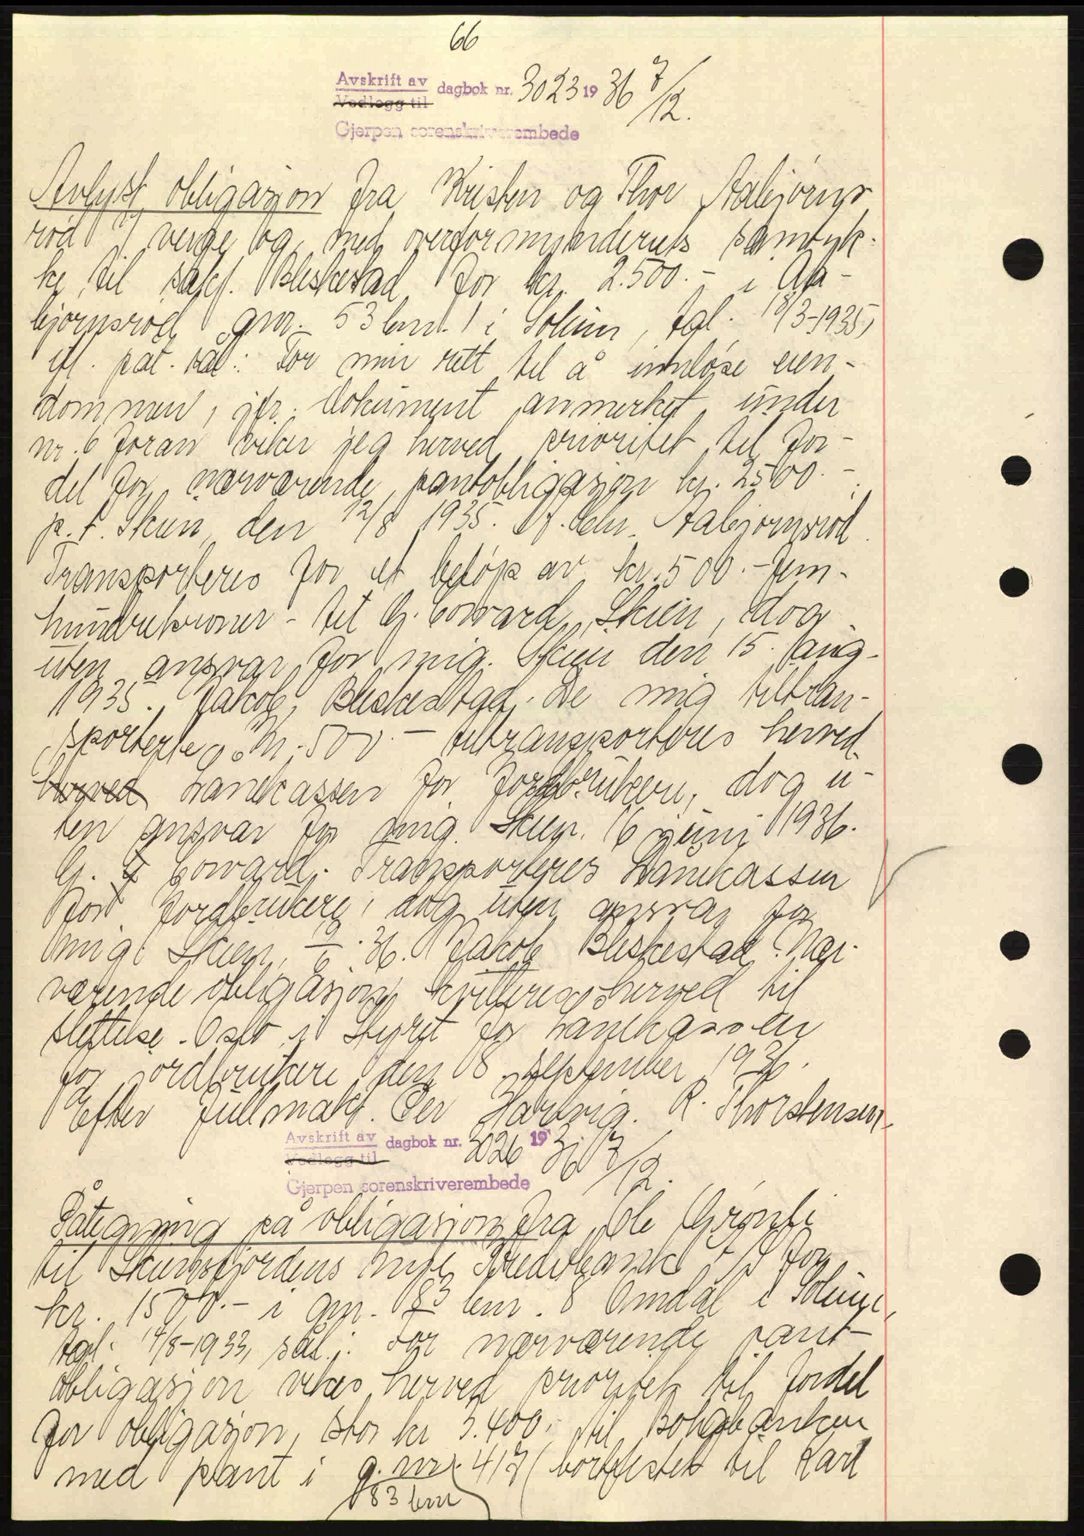 66
Avskrift av
Vedlegg til
dagbok nr. 3023 1936 7/12.
Gjerpen sorenskriverembede
Avlyst obligasjon fra Kristen og Thor Aabjörns
röd v/ verge og med overformynderiets samtyk-
ke til sakf. Bliskestad for kr. 2.500.- i Aa-
björnsröd gnr. 53 bnr. 1 i Solum, tgl. /3-1935,
pat. sål: For min rett til å innlöse eien-
dommen, jfr. dokument anmerket under
nr. 6 foran viker jeg herved prioritet til for-
del for nærværende pantobligasjon kr. 2500.-
p.t. Skien den 12/8 1935. Chr. Aabjörnsröd.
Transporteres for et belöp av kr. 500.- fem-
hundrekroner - til G. Coward, Skien, dog
uten ansvar for mig. Skien den 15. aug-
1935. Jakob Bliskestad. De mig tiltran-
sporterte kr. 500.- tiltransporteres herved
herved Lånekassen for Jordbrukere, dog u-
ten ansvar for mig. Skien 16 juni 1936.
G. Coward. Transporteres Lånekassen
for Jordbrukere, dog uten ansvar for
mig. Skien, /6 36. Jakob Bliskestad. Nær-
værende obligasjon kvitteres herved til
slettelse. Oslo i Styret for Lånekassen
for jordbrukere den 18. september 1936.
Efter fullmakt. Per Hartvig. R. Thorstensen.
Avskrift av
Vedlegg til
dagbok nr. 3026 1936 7/12.
Gjerpen sorenskriverembede
Påtegning på obligasjon fra Ole Grönli
til Skiensfjordens nye Kreditbank A/S for
kr. 1500.- i gnr. 83 bnr. 8 Omdal i Solum,
tgl. /8-1933, sål: For nærværende pant-
obligasjon vikes herved prioritet til fordel
for obligasjon, stor kr 3.400.- til Boligbanken
med pant i g. nr. 417 (bortfestet til Karl
83 bnr